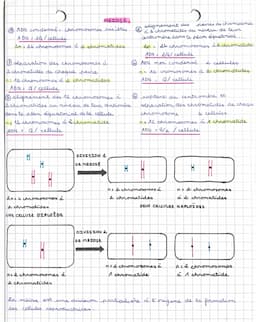 MÉIOSE
① ADN condensé : chromosomes visibles
ADN : 2Q / cellule
2n : 2n chromosomes à 2 chromatides
② séparation des chromosomes à
2 chromatides de chaque paire
n : n chromosomes à 2 chromatides
ADN : Q / cellule
③ alignement des n chromosomes à
2 chromatides au niveau de leur centromère
dans le plan équatorial de la cellule
n : n chromosomes à 2 chromatides
ADN : Q / cellule
alignement des paires de chromosomes
à 2 chromatides au niveau de leur
centromère dans le plan équatorial
2n : 2n chromosomes à 2 chromatides
ADN : 2Q / cellule
ADN non condensé 2 cellules
n : n chromosomes à 2 chromatides
ADN : Q / cellule
rupture du centromère et
séparation des chromatides de chaque
chromosome 4 cellules
n : n chromosomes à 1 chromatide
ADN : Q/2 / cellule
DIVISION 1
DE MÉIOSE
2n : 4 chromosomes à
2 chromatides
UNE CELLULE DIPLOÏDE
n : 2 chromosomes
à 2 chromatides
n : 2 chromosomes
à 2 chromatides
DEUX CELLULES HAPLOÏDES
DIVISION 2
DE MÉIOSE
n : 2 chromosomes à
2 chromatides
n : 2 chromosomes
à 1 chromatide
n : 2 chromosomes
à 1 chromatide
La méiose est une division particulière à l'origine de la formation
des cellules reproductrices.